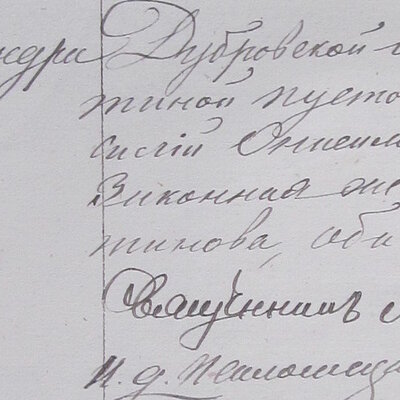 ндра Дубровской
тиной пусто
силій Онисим
Законная же
тинова, оба
Священникъ
И. д. Псаломщ